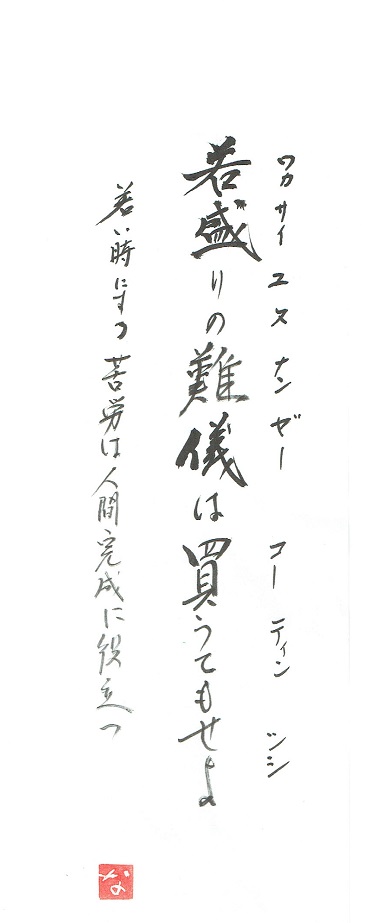 ワカサイ ユヌ ナンゼー コーティン ッシ
若盛りの難儀は買うてもせよ
若い時にする苦労は人間完成に役立つ
な